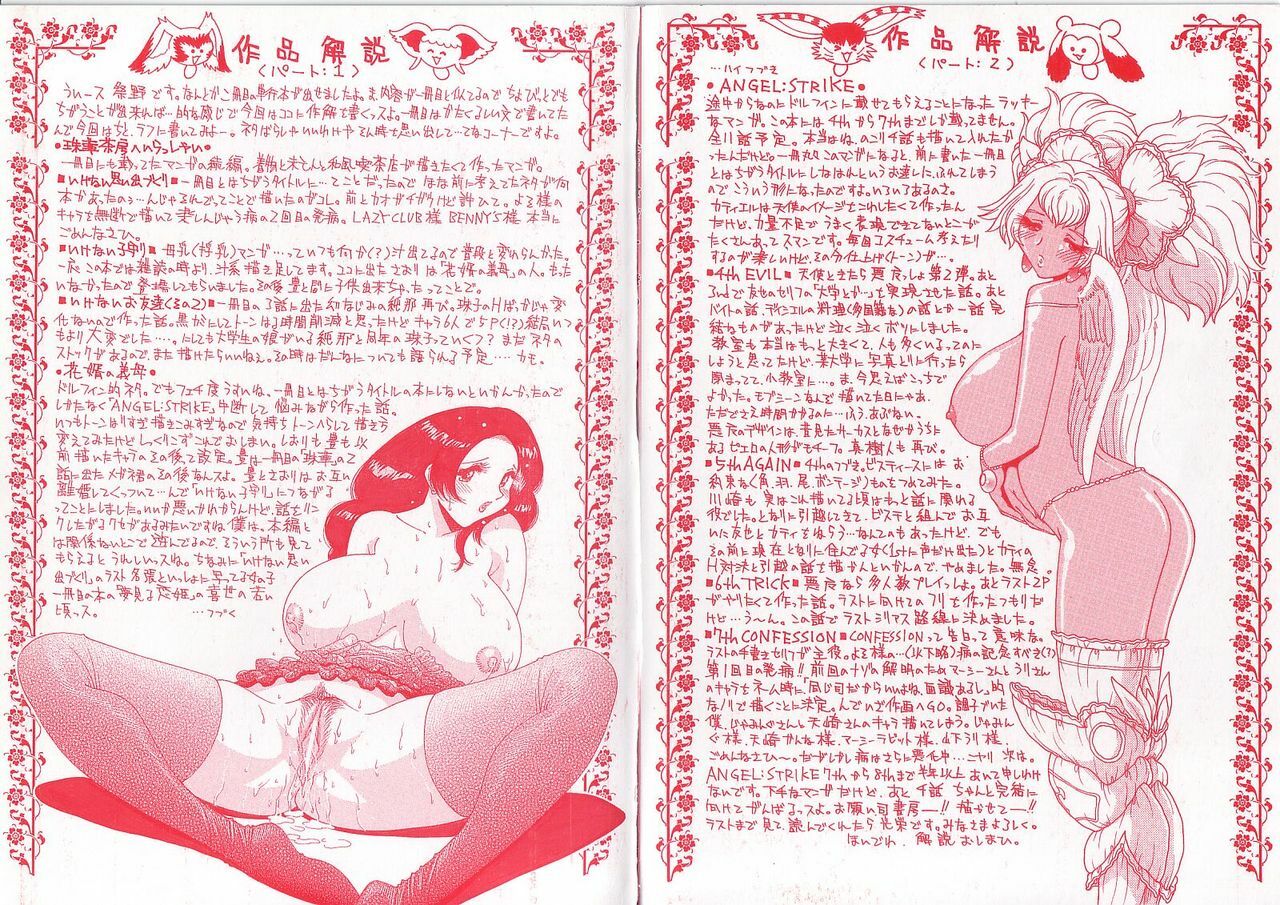 作品解説
(パート:1)
ういース 祭野です。なんとか二冊目の単行本が出せましたよ。ま、内容が一冊目と似てるので ちょびっとでも
ちがうことが出来れば…的な感じで今回はココに作解で書くっスよ。一冊目はかたくるしい文で書いてた
んで今回はちと、ラフに書いてみよー。
一冊目にも載ってたマンガの続編。着物と米もんと和風喫茶店が描きたくて作ったマンガ。
■いけない思い出づくり■一冊目とはちがうタイトルに…てことだったので ほな前に考えてたネタが何
本かあったのぅ…んじゃ並んでってことで描いたのがコレ。前とカオがチガうけど許ひて。よる様の
キャラを無断で描いて妻しんじゃう病の2回目の発病。LAZY CLUB様 BENNY'S様 本当に
ごめんなさひ。
■いけない子守り■ 母乳(搾乳)マンガ…っていっても何か(?)汁出てるので普段と変わらんかった。
一応 この本では雑誌の時より、汁系描き足してます。ココに出たさおりは「花婿の義母」の人。もった
いなかったので 登場してもらいました。その後 豊と間に子供出来ちゃったってことで。
■いけないお友達(その2)■一冊目の3話に出た幼なじみの紙那 再び。珠子のHばっかじゃ変
化ないので作った話。黒ヌリにしトーンはる時間削減と思ったけど キャラ6人で5P(!?)結局いつ
もより大変でした…。にしても大学生の娘がいる紙那と同年の珠子っていくつ? まだ ネタへ
ストックがあるので、また描けたらいいねぇ。その時はだんなについても語られる予定…… かも。
●花婿の義母●
ドルフィン的ネタ。でもフェチ度うすいね。一冊目とはちがうタイトルの本にしないといかんかったので
しかたなくANGEL:STRIKE中断して 悩みながら作った話。
いつもトーンはりすぎ描きこみすぎなので 気持ちトーンへらして描き方
変えてみたけど しっくりこずこんでおしまい。しおりも豊も以
前描いたキャラのその後って設定。豊は一冊目の「珠華」の2
話に出たメガネ君のその後なんスよ。豊とさおりはお互い
離婚してくっついて…んで「いけない子守り」につながる
ってことにしました。いいか悪いかわからんけど、話をリン
クしたがるクセがあるみたいですね、僕は。本編と
は関係ないとこで遊んでるので、そういう所も見て
もらえるとうれしいっスね。ちなみに「いけない思い
出づくり」のラスト 名張といっしょに写ってる女の子
一冊目の本の「夢見る恋姫」の喜世の若い
頃っス。 …つづく
作品解説
(パート:2)
…ハイつづき
●ANGEL:STRIKE●
途中からなのにドルフィンに載せてもらえることになったラッキー
なマンガ。この本には4thから7thまでしか載ってません。
全11話予定。本当はね、のこり4話も描いて入れたか
ったんだけどの。一冊丸々このマンガになると、前に書いた一冊目
とはちがうタイトルにしなはれというお達し、ふんでしまう
のでこういう形になったですよ。いろいろあるのさ。
カティエルは天使のイメージをこわしたくて作ったん
だけど、力量不足でうまく表現できてないとこが
たくさんあってスマンです。毎回コスチューム考えたり
するのが楽しいけど、その分仕上げ(トーン)が…。
■4th EVIL■天使ときたら悪魔っしょ第2弾。あと
3ndで友也のセリフの「大学とか」を実現させた話。あと
バイトの話、ティニエルの料理(多国籍な)の話とか一話完
結ものがあったけど泣く泣くボツにしました。
教室も本当はもっと大きくて、人も多くいるってのに
しようと思ってたけど、某大学に写真とりに行ったら
閉まってて、小教室に…。ま、今思えばこっちで
よかった。モブシーンなんて描いてた日にゃあ、
ただでさえ時間かかるのに…ふう、あぶない。
悪魔のデザインは、昔見たサーカスとなぜかうちに
あるピエロの人形がモチーフ。真樹人も再び。
■5th AGAIN■4thのつづき。ビスティースには お
約束な(角、羽、尾、ボンテージ)ものをつけてみた。
川崎も実はこれ描いてる頃はもっと話に関わる
役でした。となりに引越してきて、ビステと組んで お互
いに友也とカティをねらう…なんてのもあったけど、でも
その前に現在となりに住んでる女(1stに声だけ出た)とカティの
H対決と引越の話を描かんといかんので、やめました。無念。
■6th TRICK■悪魔なら多人数プレイっしょ。あとラスト2P
がやりたくて作った話。ラストに向けてのフリも作ったつもりだ
けど…う〜ん。この話でラストシリアス路線に決めました。
■7th CONFESSION■CONFESSIONって告白って意味な。
ラストの手書きセリフが主役。よる様の…(以下略)病の記念すべき(?)
第1回目の発病!! 前回のナゾの解明のためマーシーさんとうりさ
んのキャラもネーム時に「同じ司だからいいよね、面識あるし」的
なノリで描くことに決定。んでいざ作画へGO。調子づいた
僕、じゃみんぐさんと天崎さんのキャラ描いてしまう。じゃみん
ぐ様、天崎かんな様、マーシーラビット様、山下うり様、
ごめんなさひ〜。だがしかし病はさらに悪化中…ニヤリ 次は。
ANGEL:STRIKE 7thから8thまで半年以上あいて申しわけ
ないです。下手なマンガだけど、あと4話ちゃんと完結に
向けてがんばるっスよ。お願い司書房ー!! 描かせてー!!
ラストまで見て、読んでくれたら光栄です。みなさまよろしく。
ほいでわ、解説 おしまひ。